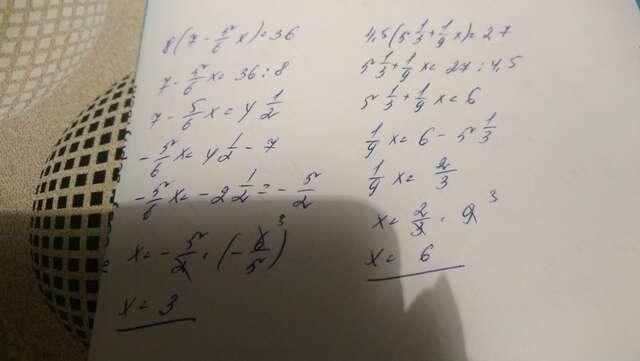 8(7 - 5/6 x) = 36
7 - 5/6 x = 36 : 8
7 - 5/6 x = 4 1/2
- 5/6 x = 4 1/2 - 7
- 5/6 x = - 2 1/2 = - 5/2
x = - 5/2 · (- 6/5) 3
x = 3
4,5(5 1/3 + 1/9 x) = 27
5 1/3 + 1/9 x = 27 : 4,5
5 1/3 + 1/9 x = 6
1/9 x = 6 - 5 1/3
1/9 x = 2/3
x = 2/3 · 9 3
x = 6